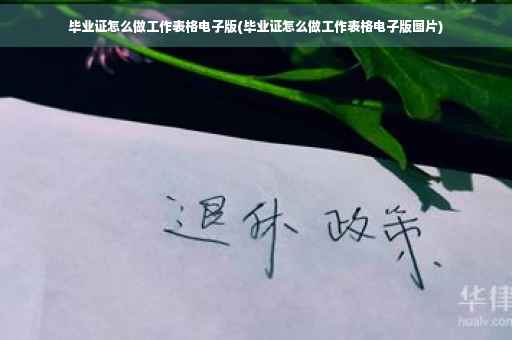 毕业证怎么做工作表格电子版(毕业证怎么做工作表格电子版图片)
退休 政策
华律
hualv.com